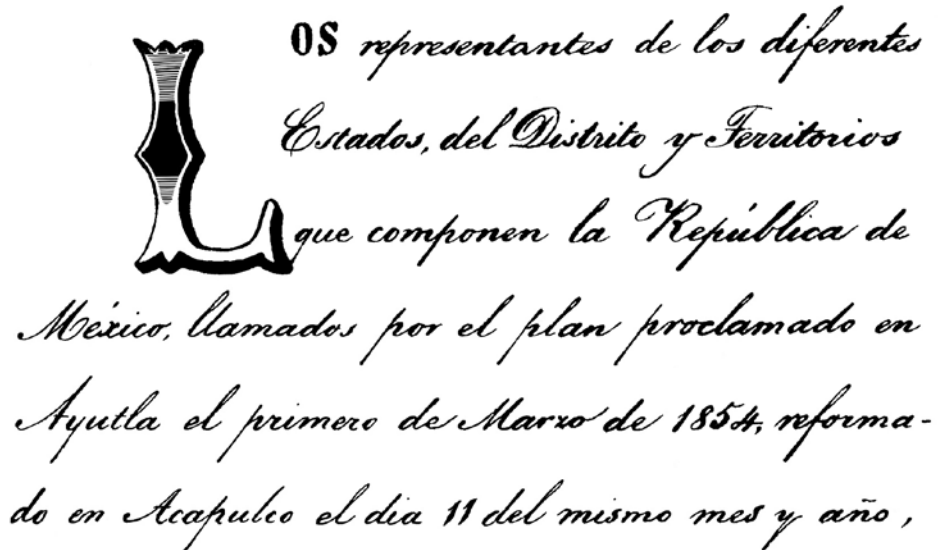 LOS representantes de los diferentes
Estados, del Distrito y Territorios
que componen la República de
México, llamados por el plan proclamado en
Ayutla el primero de Marzo de 1854, reforma-
do en Acapulco el dia 11 del mismo mes y año,